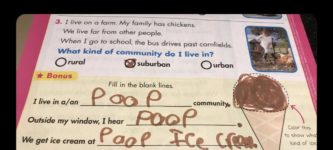 3. I live on a farm. My family has chickens.
We live far from other houses.
When I go to school, the bus drives past cornfields.
What kind of community do I live in?
rural suburban urban
★ Bonus
Fill in the blank lines.
I live in a/an Poop community.
Outside my window, I hear Poop .
We get ice cream at Poop Ice Cream
Color this
to show what
kind of ice